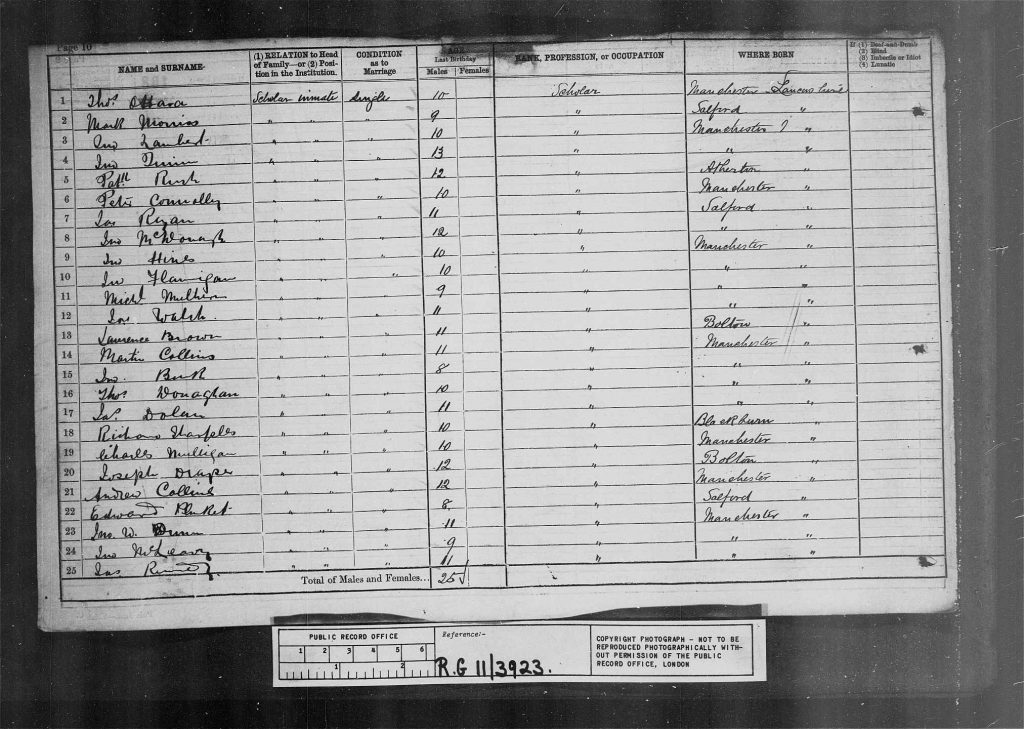 Page 10
NAME and SURNAME
(1) RELATION to Head of Family—or (2) Position in the Institution.
CONDITION as to Marriage
AGE Last Birthday
Males Females
RANK, PROFESSION, or OCCUPATION
WHERE BORN
If (1) Deaf-and-Dumb (2) Blind (3) Imbecile or Idiot (4) Lunatic
1 Thos. OHara Scholar inmate Single 10 Scholar Manchester Lancashire
2 Mark Morris " " " 9 " Salford "
3 Jno Lambert " " " 10 " Manchester "
4 Jno " " " 13 " " "
5 Patk Rush " " " 12 " Atherton "
6 Peter Connolly " " " 10 " Manchester "
7 Jas Ryan " " " 11 " Salford "
8 Jno McDonagh " " " 12 " " "
9 Jno Hines " " " 10 " Manchester "
10 Jno Flanigan " " " 10 " " "
11 Michl " " " 9 " " "
12 Jas Walsh " " " 11 " " "
13 Laurence Brown " " " 11 " Bolton "
14 Martin Collins " " " 11 " Manchester "
15 Jno. " " " 8 " " "
16 Thos Donaghan " " " 10 " " "
17 Jas. Dolan " " " 11 " " "
18 Richard Sharples " " " 10 " Blackburn "
19 Charles Mulligan " " " 10 " Manchester "
20 Joseph Draper " " " 12 " Bolton "
21 Andrew Collins " " " 12 " Manchester "
22 Edward " " " 8 " Salford "
23 Jno. W. Dunn " " " 11 " Manchester "
24 Jno McLeavy " " " 9 " " "
25 Jas " " " 11 " " "
Total of Males and Females... 25
PUBLIC RECORD OFFICE
1 2 3 4 5 6
1 2
Reference:-
R.G 11/3923.
COPYRIGHT PHOTOGRAPH - NOT TO BE
REPRODUCED PHOTOGRAPHICALLY WITH-
OUT PERMISSION OF THE PUBLIC
RECORD OFFICE, LONDON